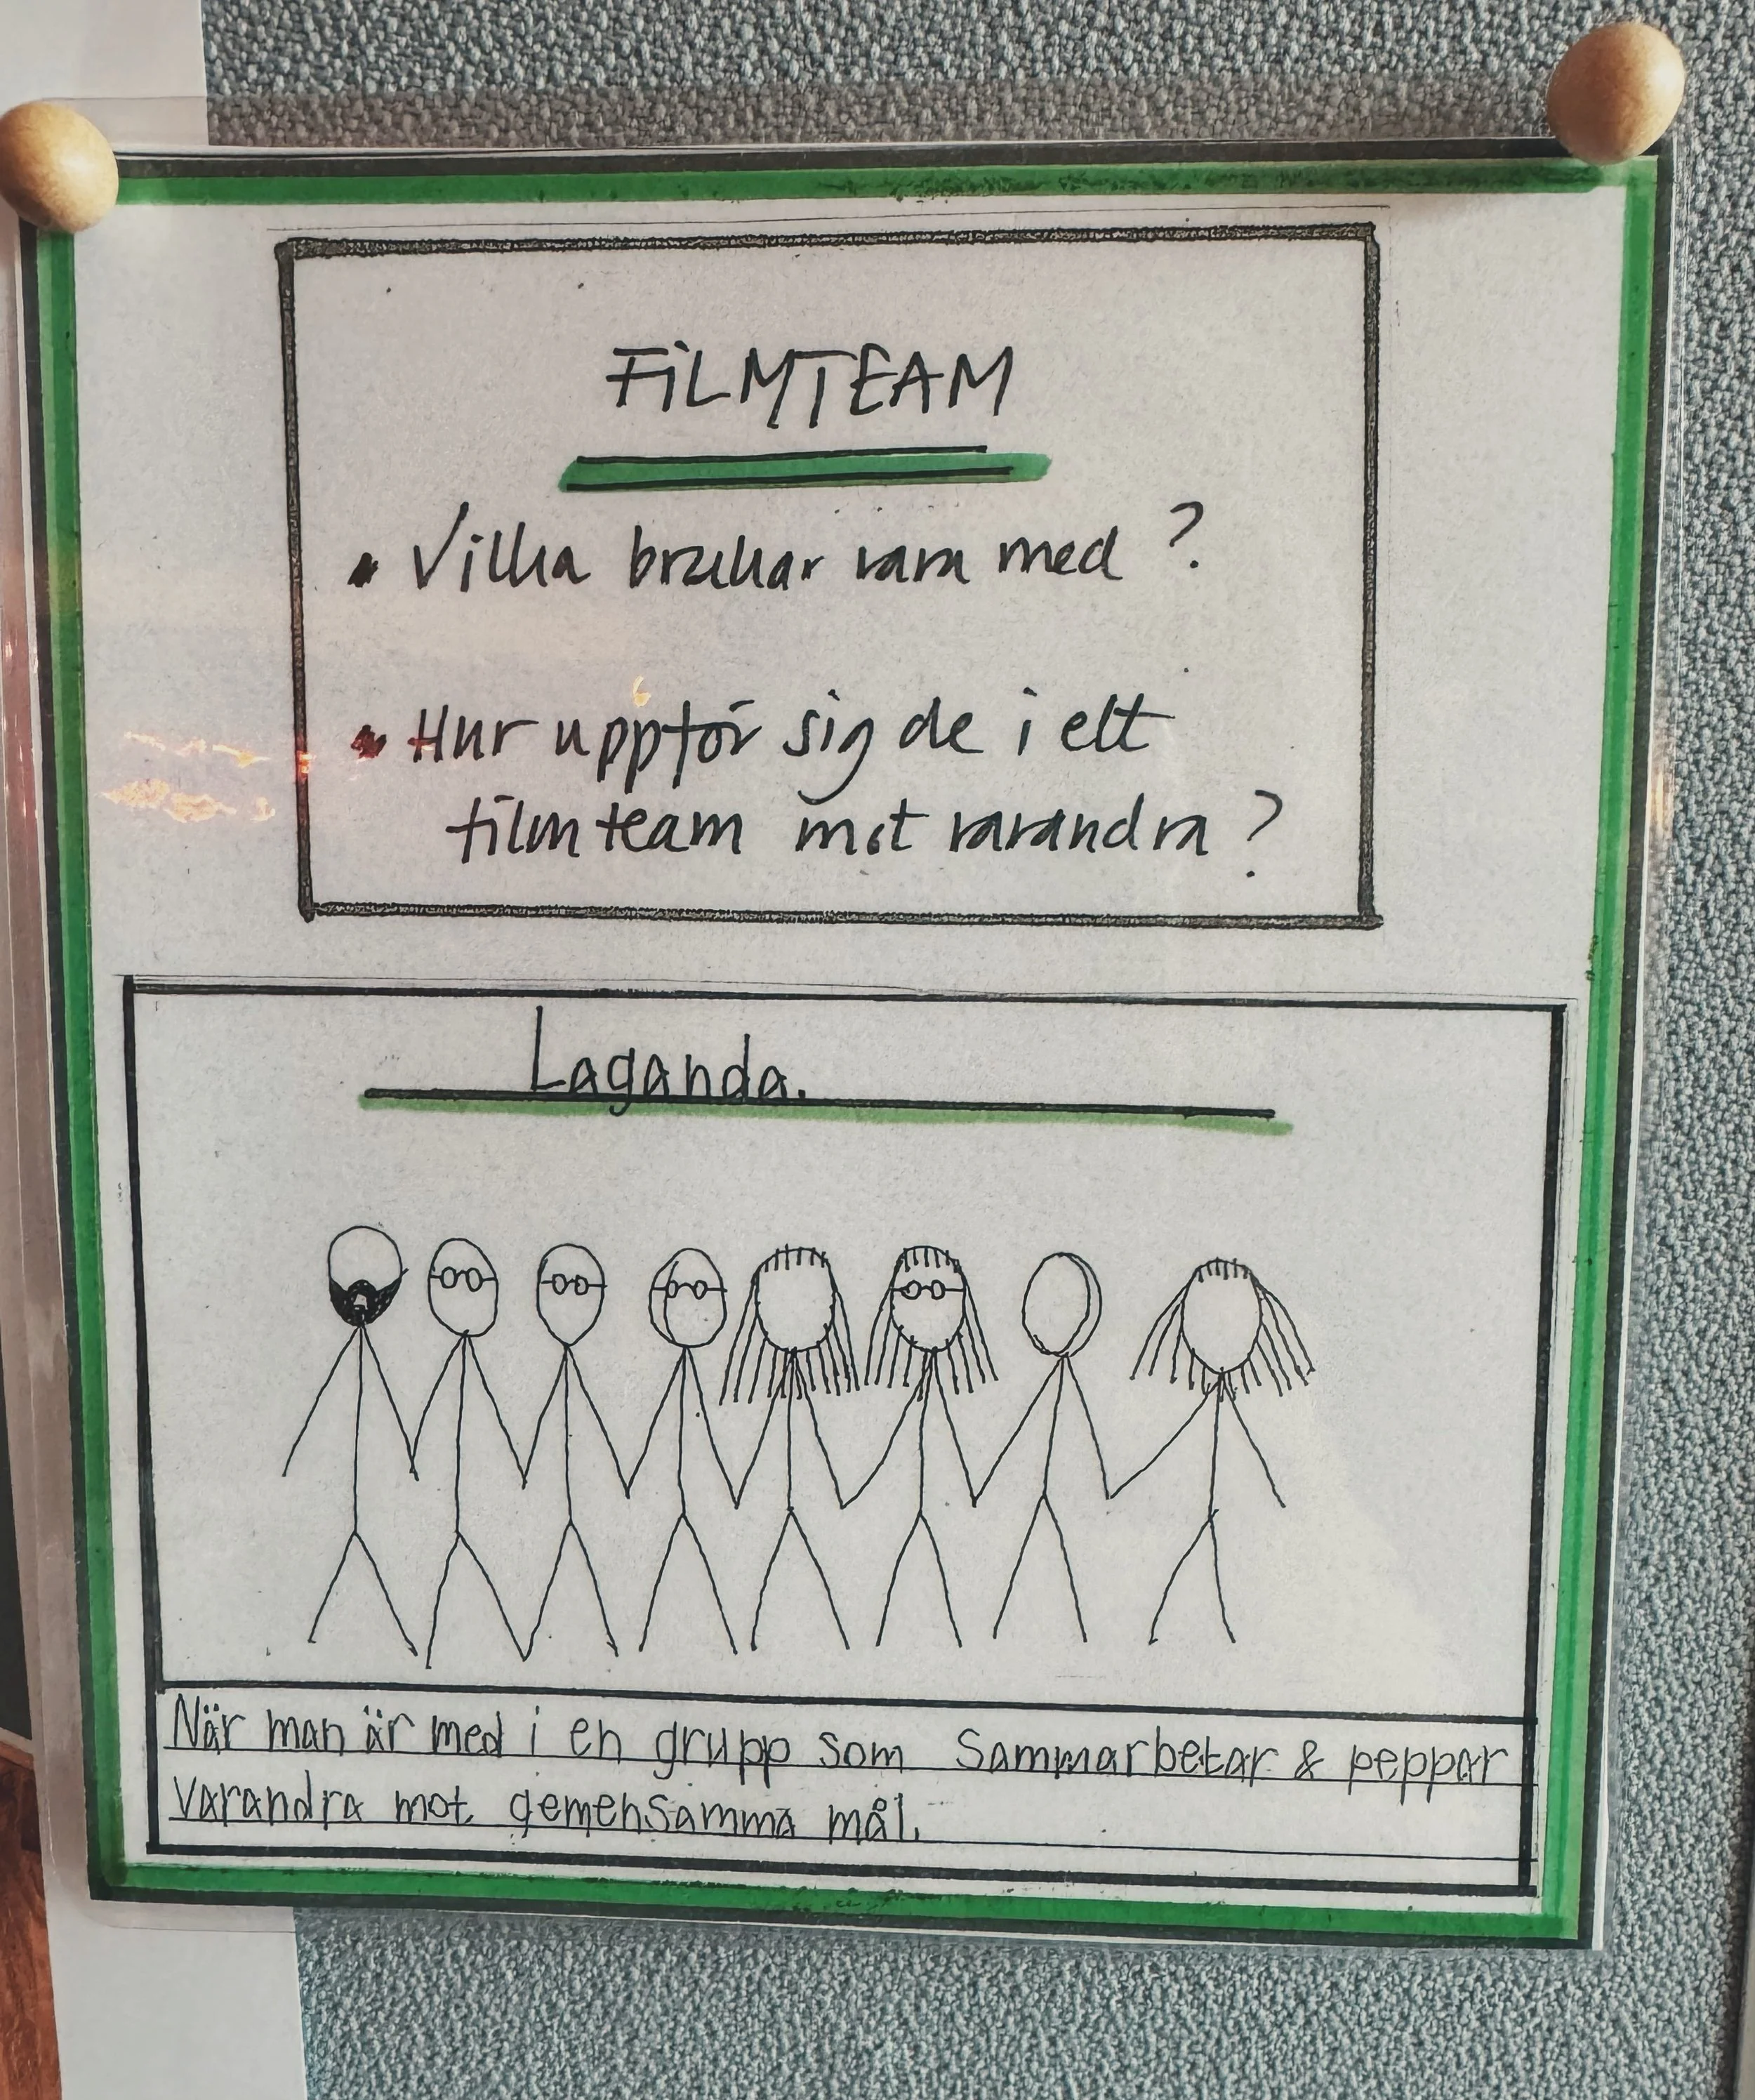 FILMTEAM
• Vilka brukar vara med ?
• Hur uppför sig de i ett
filmteam mot varandra ?
Laganda.
När man är med i en grupp som Sammarbetar & peppar
varandra mot gemensamma mål.